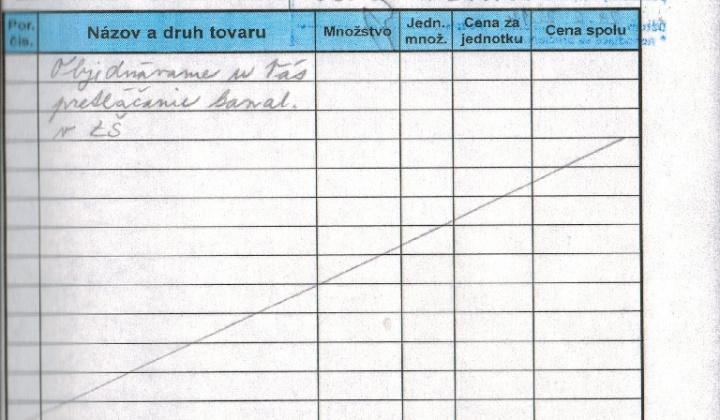 Por. čís. Názov a druh tovaru Množstvo Jedn. množ. Cena za jednotku Cena spolu
Objednávame u Vás
pretláčanie kanal.
v ZŠ